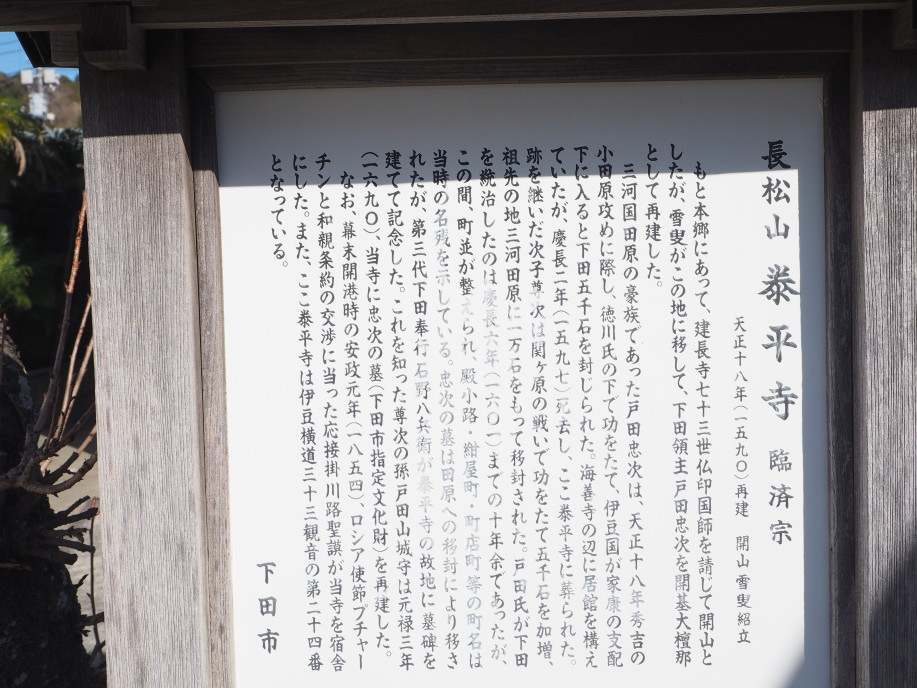 長松山 泰平寺 臨済宗
天正十八年(一五九〇)再建 開山 雪叟紹立
もと本郷にあって、建長寺七十三世仏印国師を請じて開山と
したが、雪叟がこの地に移して、下田領主戸田忠次を開基大檀那
として再建した。
三河国田原の豪族であった戸田忠次は、天正十八年秀吉の
小田原攻めに際し、徳川氏の下で功をたて、伊豆国が家康の支配
下に入ると下田五千石を封じられた。海善寺の辺に居館を構え
ていたが、慶長二年(一五九七)死去し、ここ泰平寺に葬られた。
跡を継いだ次子尊次は関ヶ原の戦いで功をたて五千石を加増、
祖先の地三河田原に一万石をもって移封された。戸田氏が下田
を統治したのは慶長六年(一六〇一)までの十年余であったが、
この間、町並が整えられ、殿小路・紺屋町・町店町等の町名は
当時の名残を示している。忠次の墓は田原への移封により移さ
れたが、第三代下田奉行石野八兵衛が泰平寺の故地に墓碑を
建てて記念した。これを知った尊次の孫戸田山城守は元禄三年
(一六九〇)、当寺に忠次の墓(下田市指定文化財)を再建した。
なお、幕末開港時の安政元年(一八五四)、ロシア使節プチャー
チンと和親条約の交渉に当った応接掛川路聖謨が当寺を宿舎
にした。また、ここ泰平寺は伊豆横道三十三観音の第二十四番
となっている。
下田市